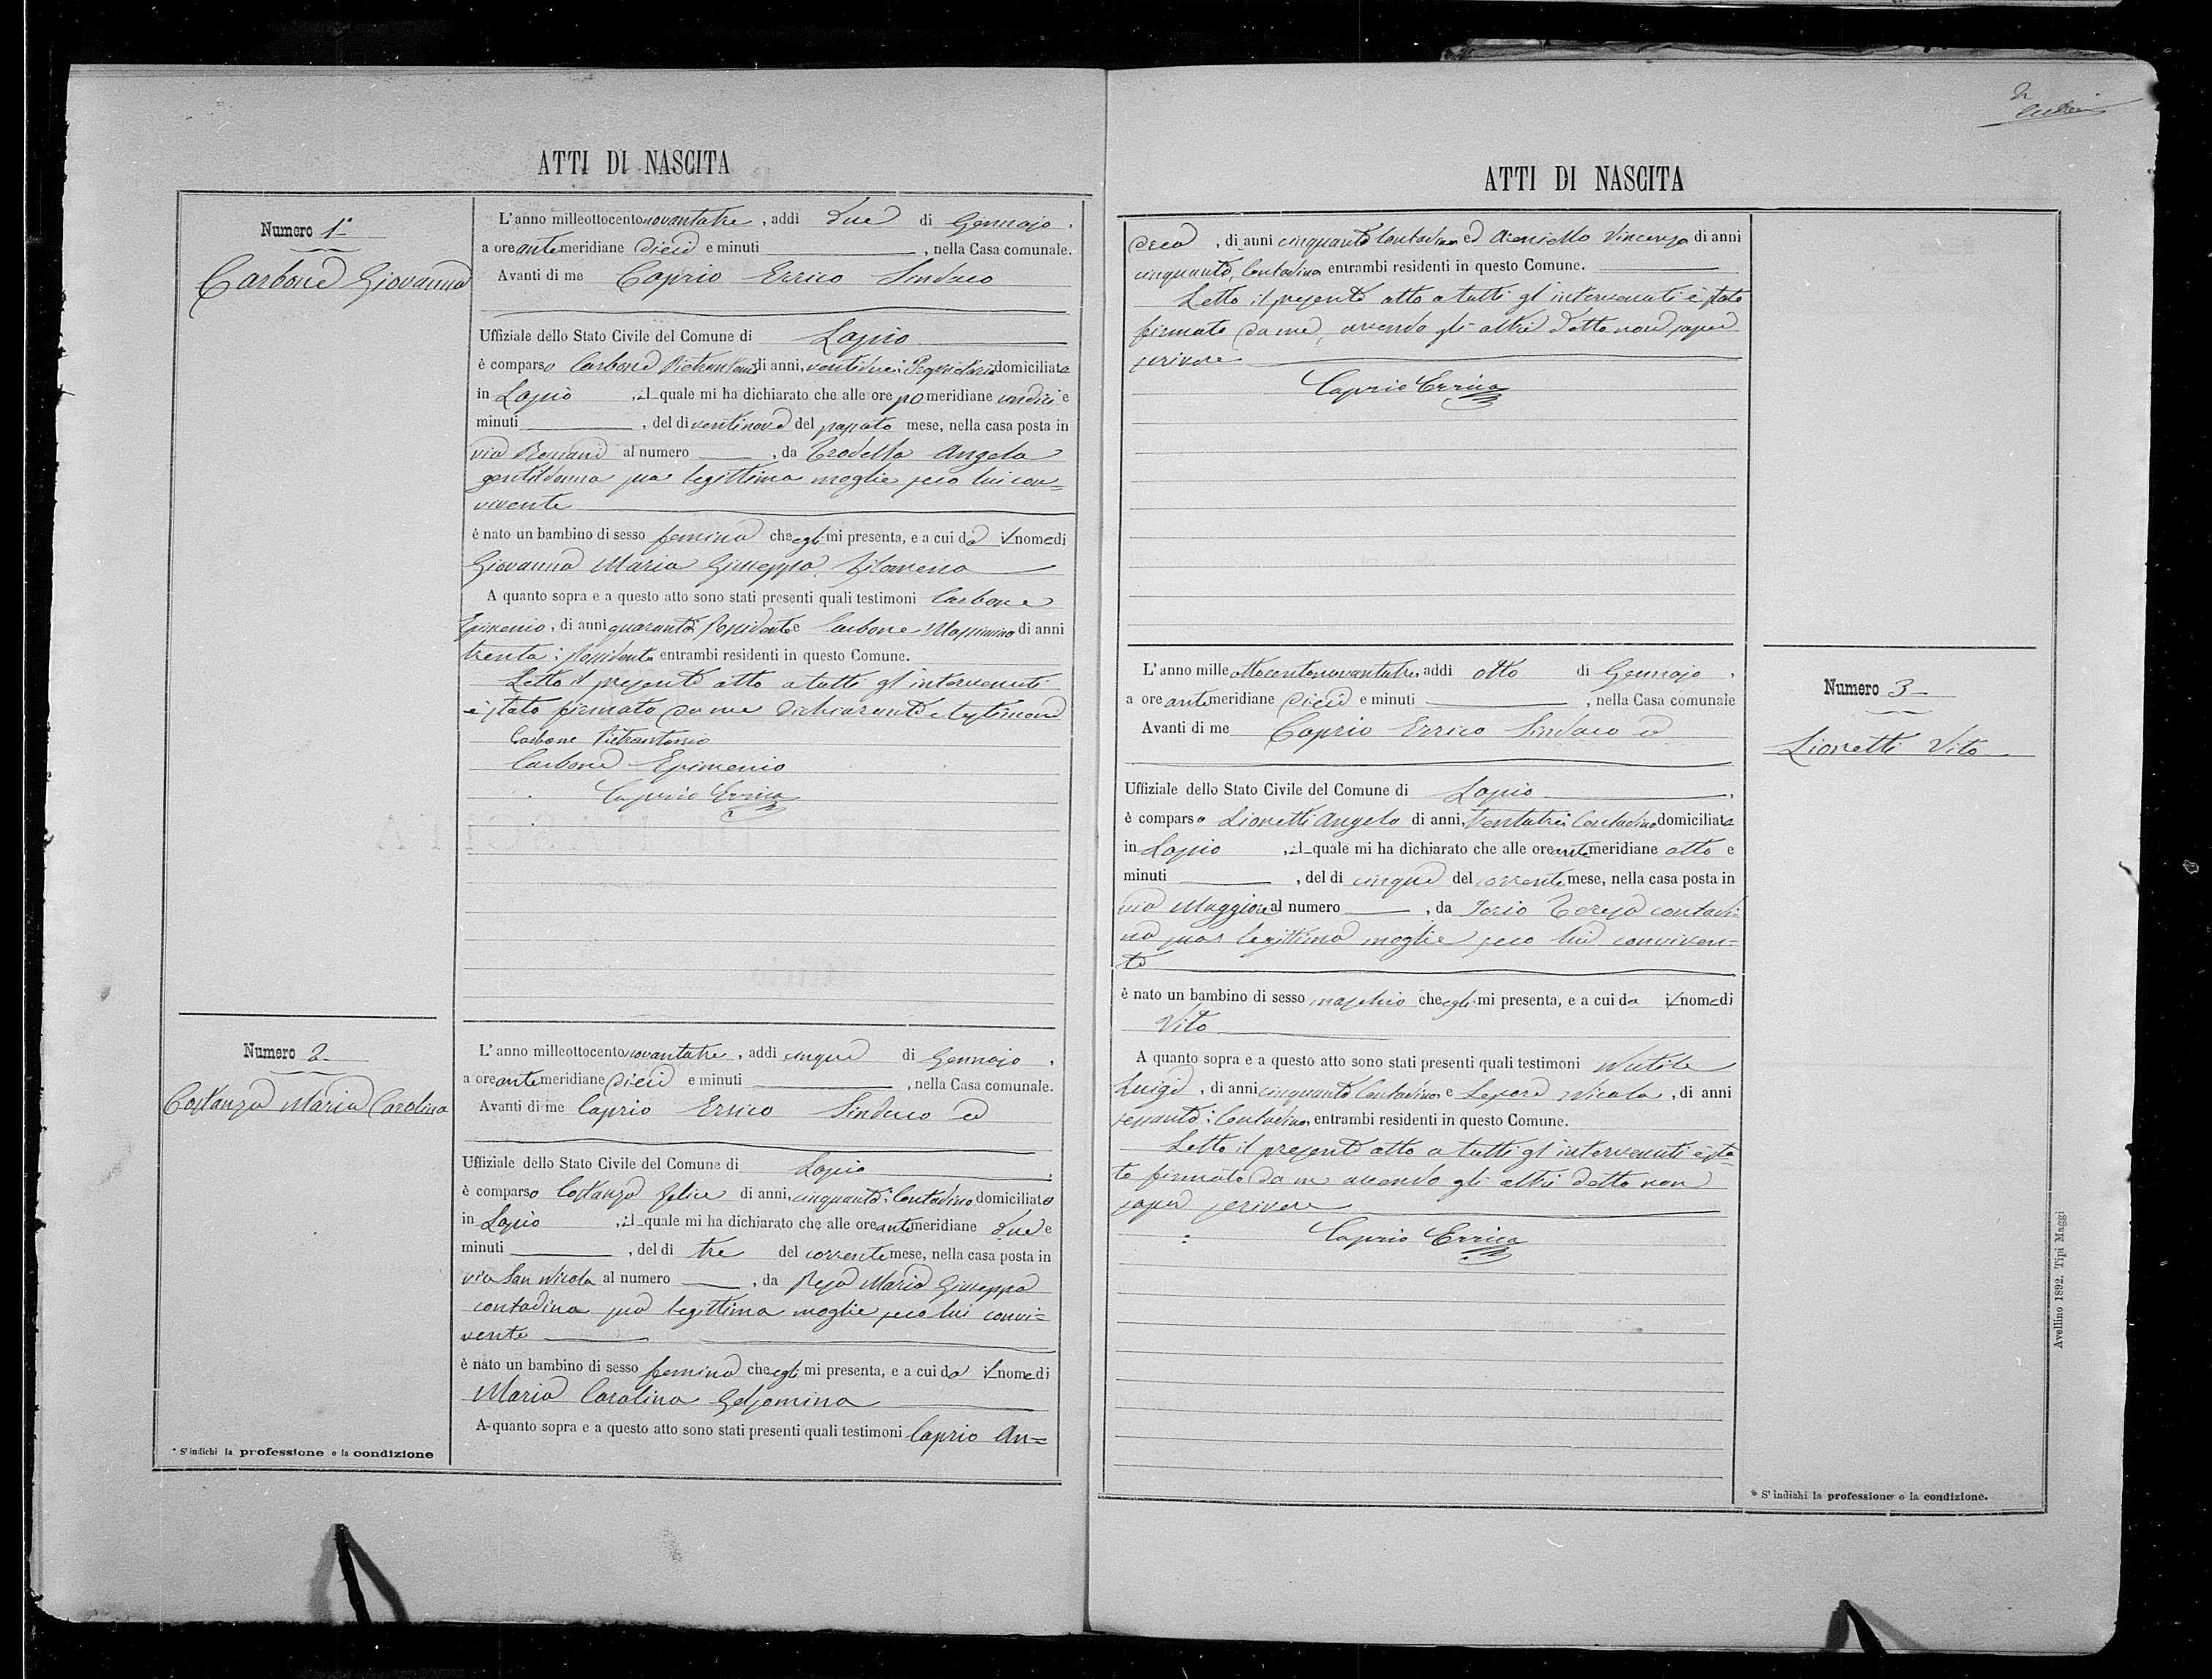 ATTI DI NASCITA
Numero 1°
Carbone Giovanna
L'anno milleottocentonovantatre, addì due di Gennajo,
a ore antemeridiane dieci e minuti, nella Casa comunale.
Avanti di me Caprio Errico Sindaco
Uffiziale dello Stato Civile del Comune di Lapio
è comparso Carbone Pietrantonio di anni, ventidue; Proprietario domiciliato
in Lapio, il quale mi ha dichiarato che alle ore pomeridiane undici e
minuti, del dì ventinove del passato mese, nella casa posta in
via al numero, da Trodella Angela
gentildonna sua legittima moglie seco lui con=
vivente
è nato un bambino di sesso feminino che egli mi presenta, e a cui dà il nome di
Giovanna Maria Giuseppa Filomena
A quanto sopra e a questo atto sono stati presenti quali testimoni Carbone
Epimenio, di anni quaranta, Possidente e Carbone Massimino di anni
trenta; Possidente entrambi residenti in questo Comune.
Letto il presente atto a tutti gl'intervenuti
è stato firmato da me dichiarante e testimoni
Carbone Pietrantonio
Carbone Epimenio
Caprio Errico
Numero 2
Costanza Maria Carolina
L'anno milleottocentonovantatre, addì cinque di Gennajo,
a ore antemeridiane dieci e minuti, nella Casa comunale.
Avanti di me Caprio Errico Sindaco ed
Uffiziale dello Stato Civile del Comune di Lapio
è comparso Costanzo Felice di anni, cinquanta; Contadino domiciliato
in Lapio, il quale mi ha dichiarato che alle ore antemeridiane due e
minuti, del dì tre del corrente mese, nella casa posta in
via San Nicola al numero, da Maria Giuseppa
contadina sua legittima moglie seco lui convi=
vente
è nato un bambino di sesso feminino che egli mi presenta, e a cui dà il nome di
Maria Carolina Gelsomina
A quanto sopra e a questo atto sono stati presenti quali testimoni Caprio An=
* S'indichi la professione o la condizione
ATTI DI NASCITA
drea, di anni cinquanta Contadino ed Vincenzo di anni
cinquanta, Contadino entrambi residenti in questo Comune.
Letto il presente atto a tutti gl'intervenuti è stato
firmato da me, avendo gli altri detto non saper
scrivere
Caprio Errico
L'anno milleottocentonovantatre, addì otto di Gennajo,
a ore antemeridiane dieci e minuti, nella Casa comunale
Avanti di me Caprio Errico Sindaco ed
Numero 3
Lionetti Vito
Uffiziale dello Stato Civile del Comune di Lapio
è comparso Lionetti Angelo di anni, trentatre; Contadino domiciliato
in Lapio, il quale mi ha dichiarato che alle ore antemeridiane otto e
minuti, del dì cinque del corrente mese, nella casa posta in
via Maggiore al numero, da Iorio Teresa contadi=
na sua legittima moglie seco lui conviven=
te
è nato un bambino di sesso maschio che egli mi presenta, e a cui da il nome di
Vito
A quanto sopra e a questo atto sono stati presenti quali testimoni
Luigi, di anni cinquanta Contadino e Lepore Nicola, di anni
sessanta; Contadino, entrambi residenti in questo Comune.
Letto il presente atto a tutti gl'intervenuti è sta=
to firmato da me avendo gli altri detto non
saper scrivere
Caprio Errico
* S'indichi la professione o la condizione.
Avellino 1892. Tipi Maggi